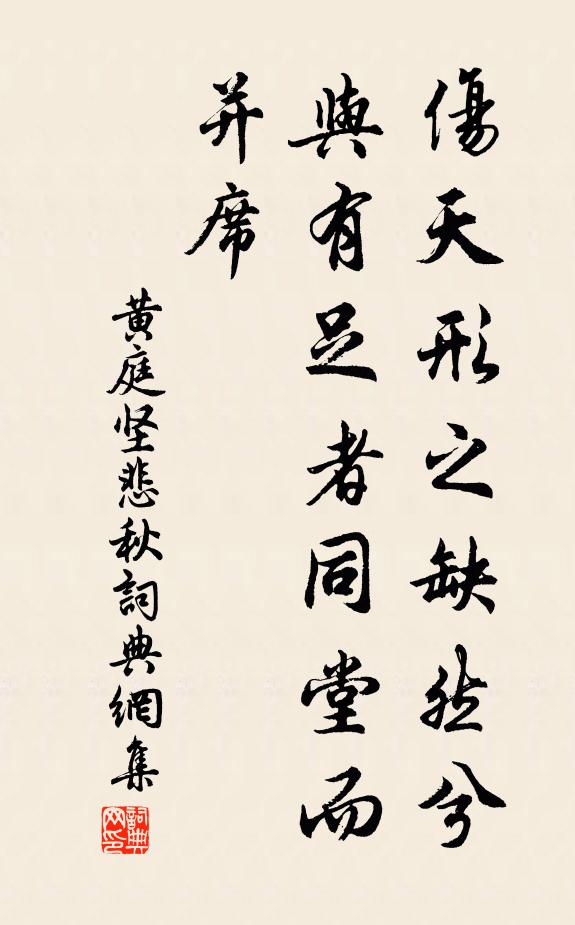 傷天形之缺然兮
與有足者同堂而
并席
黄庭坚悲秋詞典網集
詞典网印